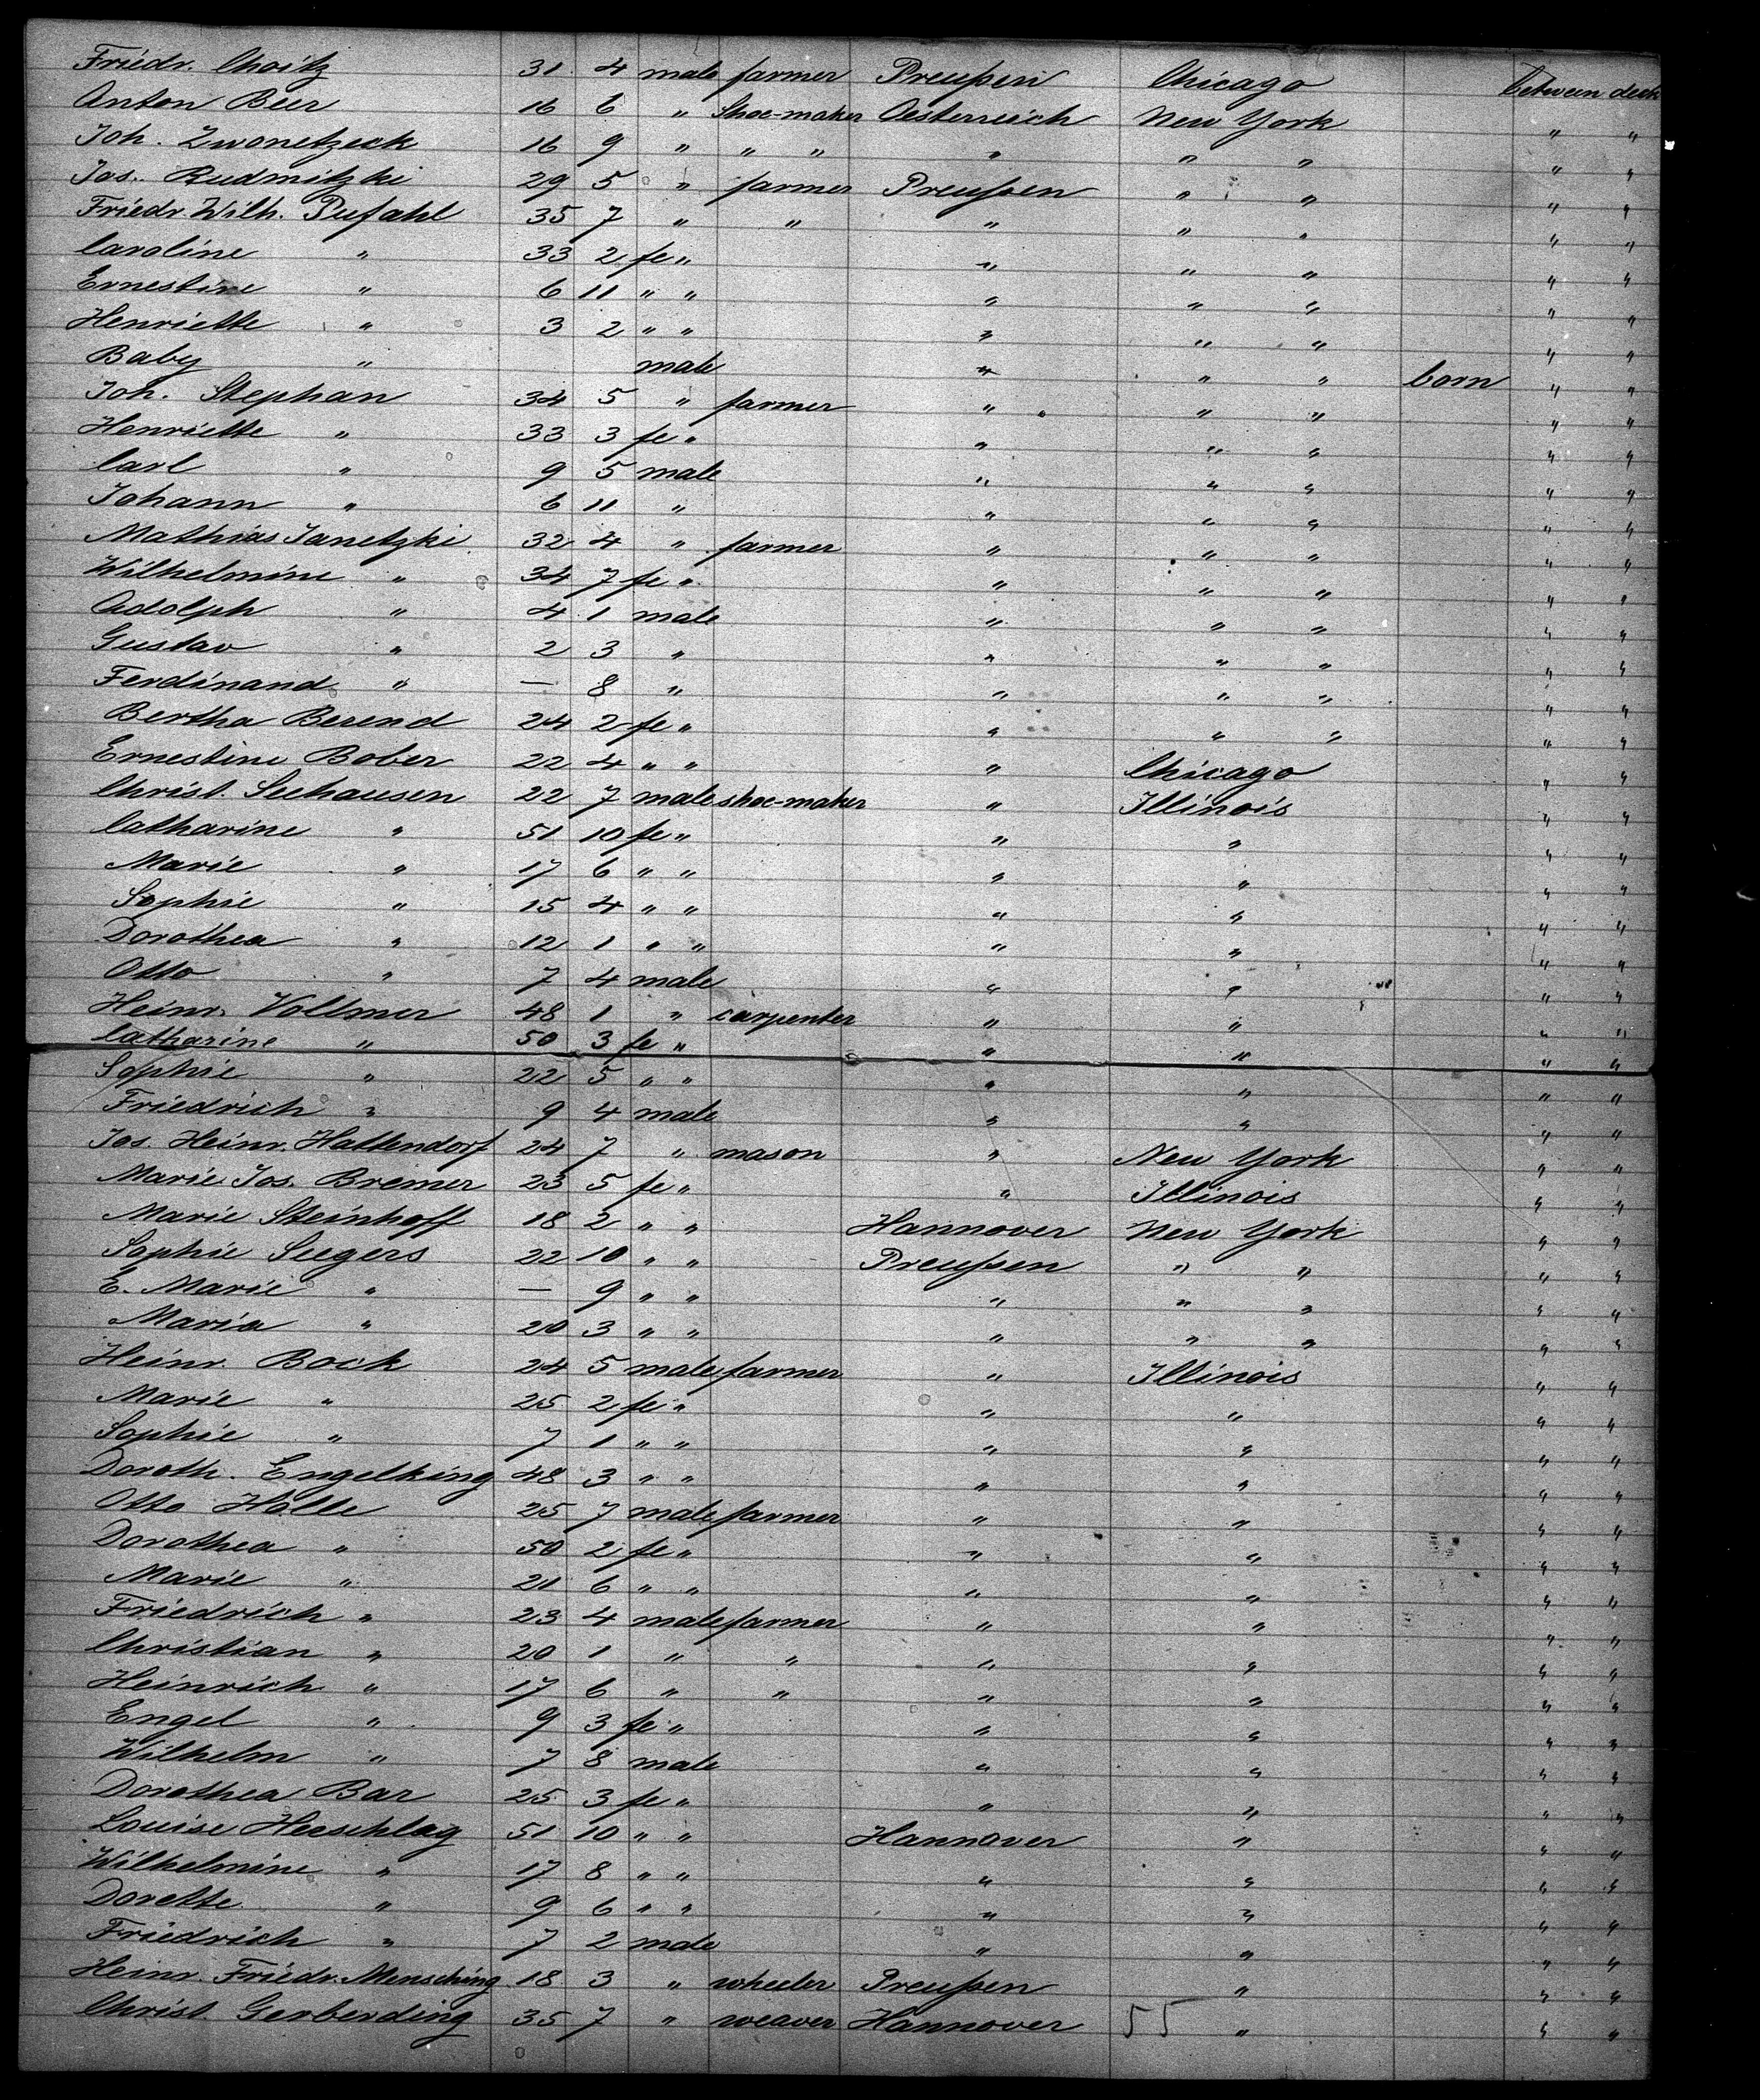 Friedr. Choitz 31 4 male farmer Preußen Chicago between deck
Anton Beer 16 6 " Shoe-maker Oesterreich New York " "
Joh. Zwonetzeck 16 9 " " " " " " " "
Jos. Rudmitzki 29 5 " farmer Preußen " " " "
Friedr. Wilh. Pufahl 35 7 " " " " " " "
Caroline " 33 2 fe " " " " " "
Ernestine " 6 11 " " " " " " "
Henriette " 3 2 " " " " " " "
Baby " male " " " born " "
Joh. Stephan 34 5 " farmer " " " " "
Henriette " 33 3 fe " " " " " "
Carl " 9 5 male " " " " "
Johann " 6 11 " " " " " "
Mathias Janetzki 32 4 " farmer " " " " "
Wilhelmine " 34 7 fe " " " " " "
Adolph " 4 1 male " " " " "
Gustav " 2 3 " " " " " "
Ferdinand " — 8 " " " " " "
Bertha Berend 24 2 fe " " " " " "
Ernestine Bober 22 4 " " " Chicago " "
Christ. Seehausen 22 7 male shoe-maker " Illinois " "
Catharine " 51 10 fe " " " " "
Marie " 17 6 " " " " " "
Sophie " 15 4 " " " " " "
Dorothea " 12 1 " " " " " "
Otto " 7 4 male " " " "
Heinr. Vollmer 48 1 " carpenter " " " "
Catharine " 50 3 fe " " " " "
Sophie " 22 5 " " " " " "
Friedrich " 9 4 male " " " "
Jos. Heinr. Hattendorf 24 7 " mason " New York " "
Marie Jos. Bremer 23 5 fe " " Illinois " "
Marie Steinhoff 18 2 " " Hannover New York " "
Sophie Seegers 22 10 " " Preußen " " " "
E. Marie " — 9 " " " " " " "
Maria " 20 3 " " " " " " "
Heinr. Bock 24 5 male farmer " Illinois " "
Marie " 25 2 fe " " " " "
Sophie " 7 1 " " " " " "
Doroth. Engelking 48 3 " " " " " "
Otto Holle 25 7 male farmer " " " "
Dorothea " 50 2 fe " " " " "
Marie " 21 6 " " " " " "
Friedrich " 23 4 male farmer " " " "
Christian " 20 1 " " " " " "
Heinrich " 17 6 " " " " " "
Engel " 9 3 fe " " " " "
Wilhelm " 7 8 male " " " "
Dorothea Bar 25 3 fe " " " " "
Louise Heeschlag 51 10 " " Hannover " " "
Wilhelmine " 17 8 " " " " " "
Dorette " 9 6 " " " " " "
Friedrich " 7 2 male " " " "
Heinr. Friedr. Mensching 18 3 " wheeler Preußen " " "
Christ. Gerberding 35 7 " weaver Hannover 55 " " "